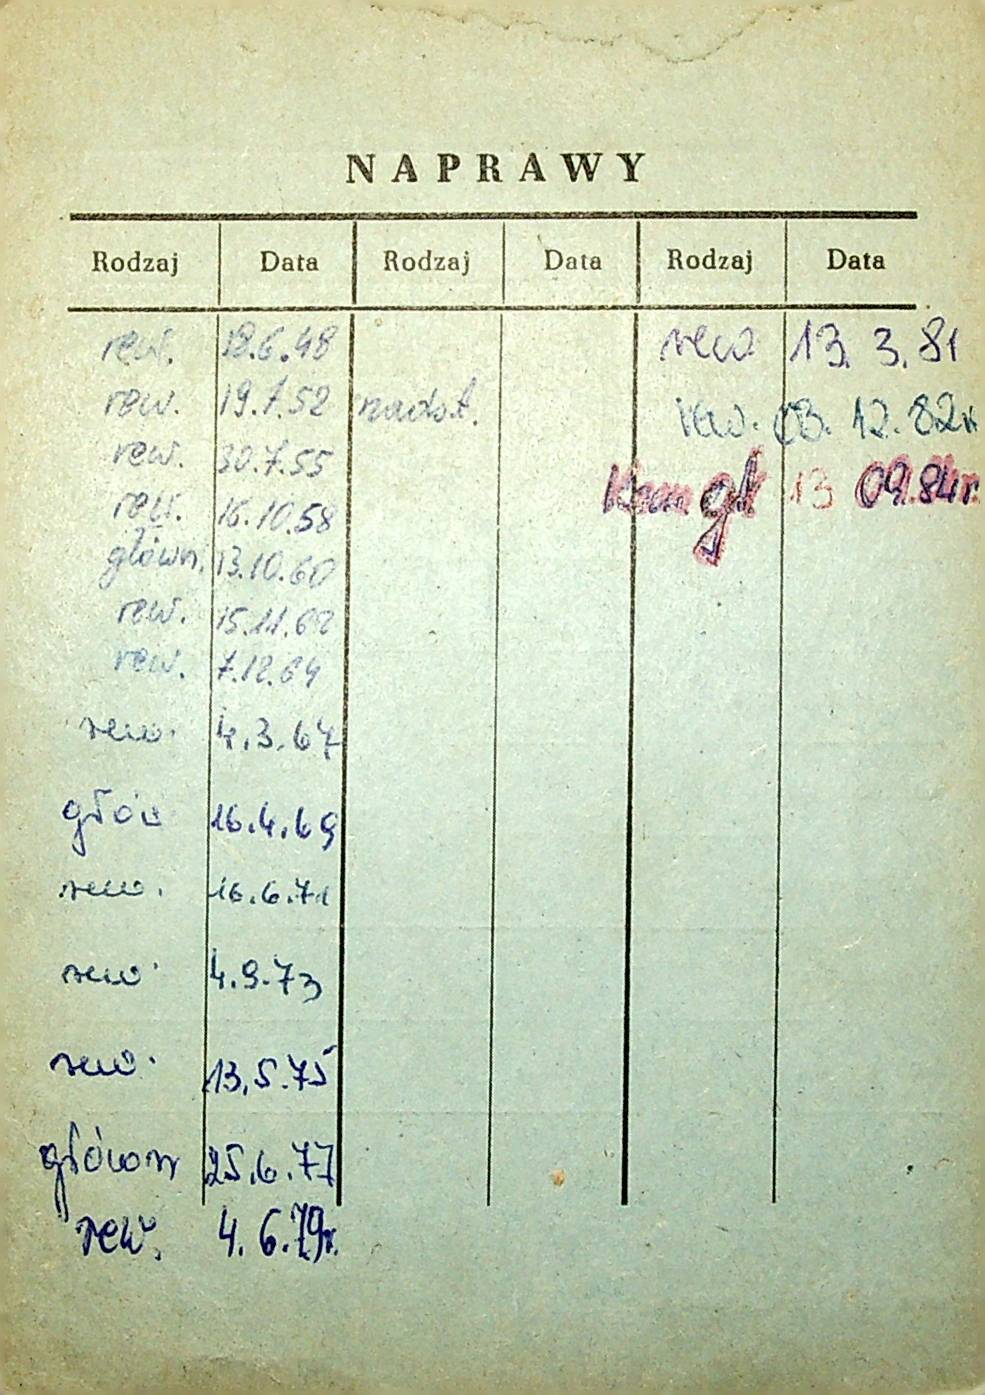 NAPRAWY
Rodzaj Data Rodzaj Data Rodzaj Data
rew. 18.6.48 rew. 13. 3. 81
rew. 19.7.52 nadst. rew. 03. 12. 82r
rew. 30.7.55 gł 13 09.84r.
rew. 16.10.58
główn. 13.10.60
rew. 15.11.62
rew. 7.12.64
rew. 4.3.67
głów 16.4.69
rew. 16.6.71
rew. 4.9.73
rew. 13.5.75
główn 25.6.77
rew. 4.6.79r.